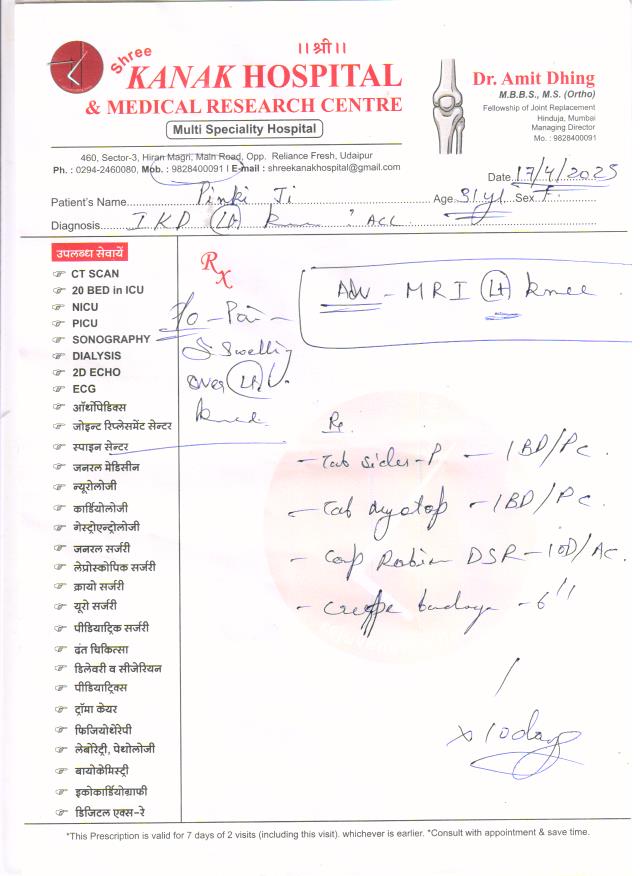 ।।श्री।।
Shree
KANAK HOSPITAL
& MEDICAL RESEARCH CENTRE
Multi Speciality Hospital
460, Sector-3, Hiran Magri, Main Road, Opp. Reliance Fresh, Udaipur
Ph. : 0294-2460080, Mob. : 9828400091 I E-mail : shreekanakhospital@gmail.com
Dr. Amit Dhing
M.B.B.S., M.S. (Ortho)
Fellowship of Joint Replacement
Hinduja, Mumbai
Managing Director
Mo. : 9828400091
Date 17/4/2025
Patient's Name Pinki Ji Age 31 yr Sex F.
Diagnosis IKD Lt knee ? ACL
उपलब्ध सेवायें
CT SCAN
20 BED in ICU
NICU
PICU
SONOGRAPHY
DIALYSIS
2D ECHO
ECG
ऑर्थोपेडिक्स
जोइन्ट रिप्लेसमेंट सेन्टर
स्पाइन सेन्टर
जनरल मेडिसीन
न्यूरोलोजी
कार्डियोलोजी
गेस्ट्रोएन्ट्रोलोजी
जनरल सर्जरी
लेप्रोस्कोपिक सर्जरी
क्रायो सर्जरी
यूरो सर्जरी
पीडियाट्रिक सर्जरी
दंत चिकित्सा
डिलेवरी व सीजेरियन
पीडियाट्रिक्स
ट्रॉमा केयर
फिजियोथेरेपी
लेबोरेट्री, पेथोलोजी
बायोकेमिस्ट्री
इकोकार्डियोग्राफी
डिजिटल एक्स-रे
Rx
Adv - MRI Lt knee
Swelling
over Lt.
knee
Rx
- Tab - 1BD/PC
- Tab - 1BD/PC.
- Cap DSR - 1OD/AC.
- Crepe bandage - 6"
x 10 days
*This Prescription is valid for 7 days of 2 visits (including this visit). whichever is earlier. *Consult with appointment & save time.